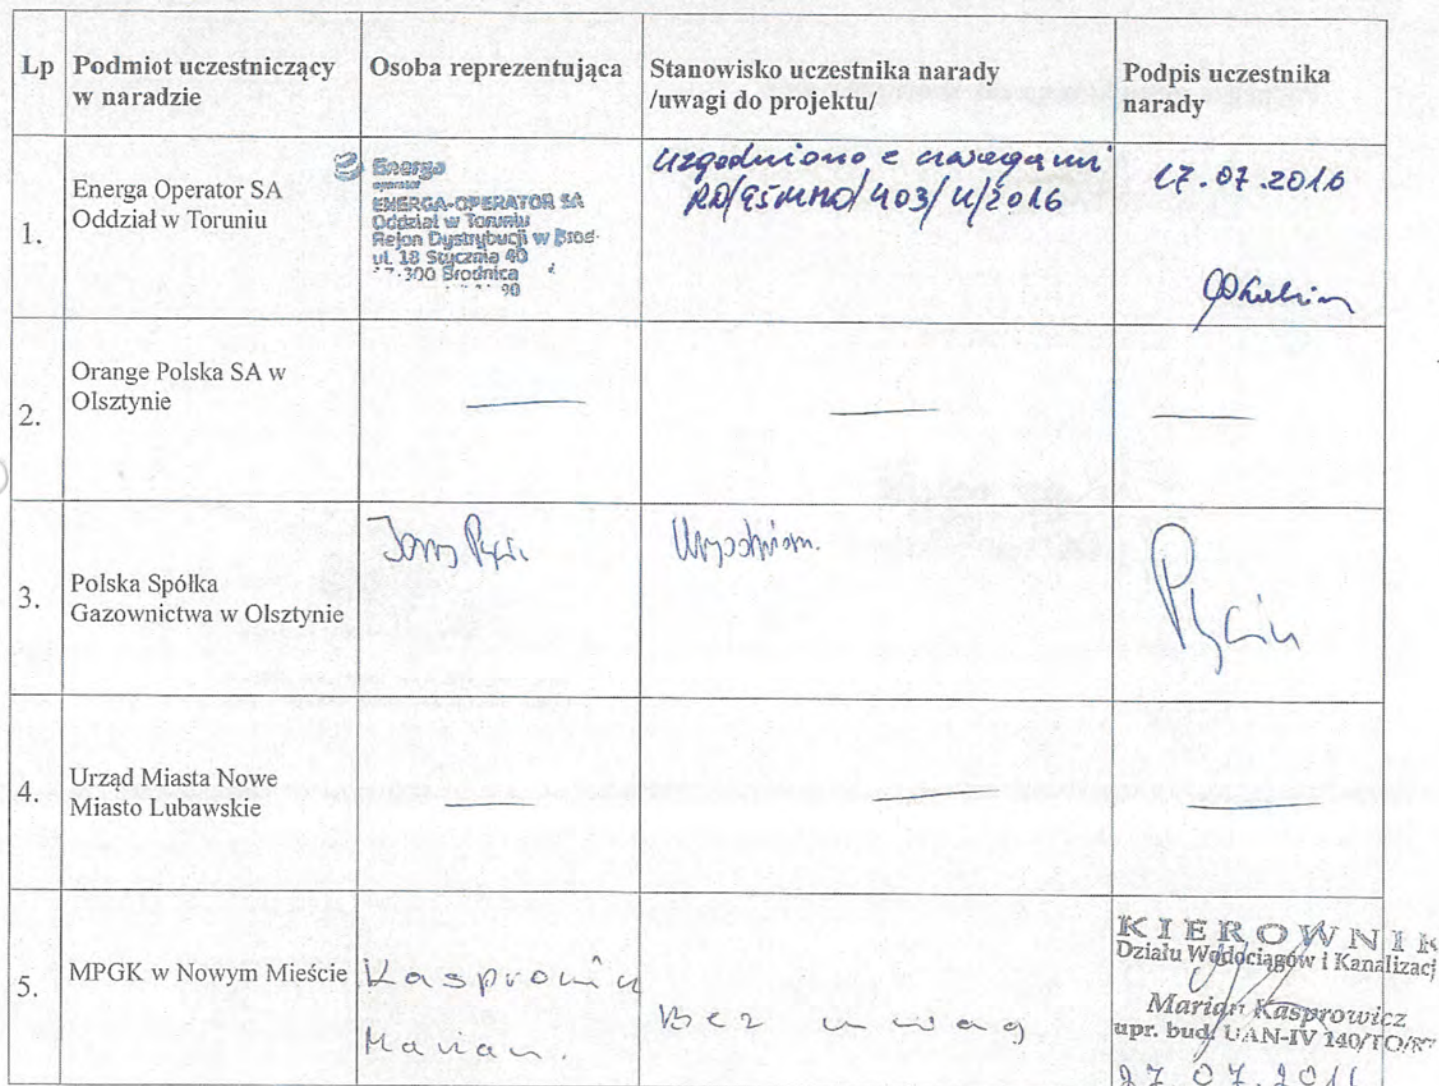 Lp
Podmiot uczestniczący
w naradzie
Osoba reprezentująca
Stanowisko uczestnika narady
/uwagi do projektu/
Podpis uczestnika
narady
1.
Energa Operator SA
Oddział w Toruniu
Energa
operator
ENERGA-OPERATOR SA
Oddział w Toruniu
Rejon Dystrybucji w Brod-
ul. 18 Stycznia 40
7-300 Brodnica
90
uzgodniono z uwagami
403/U/2016
07.2016
2.
Orange Polska SA w
Olsztynie
3.
Polska Spółka
Gazownictwa w Olsztynie
4.
Urząd Miasta Nowe
Miasto Lubawskie
5.
MPGK w Nowym Mieście
Kasprowicz
Marian.
Bez uwag
KIEROWNIK
Działu Wodociągów i Kanalizacj
Marian Kasprowicz
upr. bud. UAN-IV 140/TO/87
27.07.201